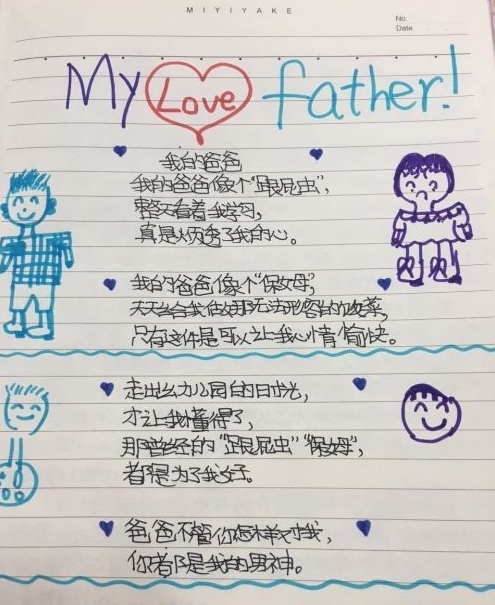 MIYIYAKE
No.
Date
My Love father!
我的爸爸
我的爸爸像个“跟屁虫”,
整天看着我学习,
真是烦透了我的心。
我的爸爸像个“保姆”,
天天给我做那无法形容的饭菜,
只有这件是可以让我心情愉快。
走出幼儿园的时光,
才让我懂得了,
那曾经的“跟屁虫”“保姆”,
都是为了我好。
爸爸不管你怎样对我,
你都是我的男神。